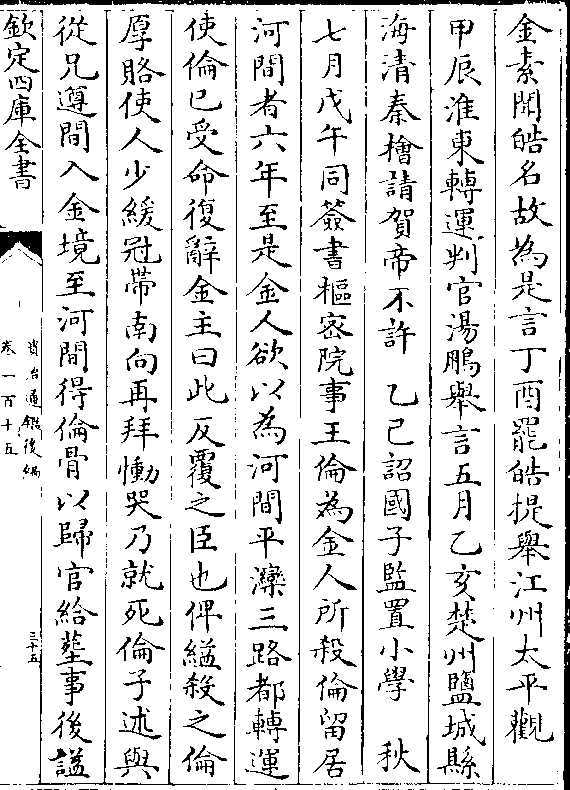 金素聞皓名故為是言丁酉罷皓提舉江州太平觀
甲辰淮東轉運判官湯鵬舉言五月乙亥楚州鹽城縣
海清秦檜請賀帝不許　乙巳詔國子監置小學　秋
七月戊午同簽書樞密院事王倫為金人所殺倫留居
河間者六年至是金人欲以為河間平灤三路都轉運
使倫已受命復辭金主曰此反覆之臣也俾縊殺之倫
厚賂使人少緩冠帶南向再拜慟哭乃就死倫子述與
從兄遵間入金境至河間得倫骨以歸官給塟事後諡
欽定四庫全書
資治通鑑後編
卷一百十五
三十五